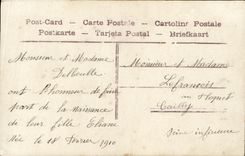 Post-Card - Carte Postale - Cartolina Postale
Postkarte - Tarjeta Postal - Briefkaart
Monsieur et Madame
Delboulle
ont l'honneur de faire
part de la naissance
de leur fille Eliane
Née le 18 Février 1910
Monsieur et Madame
Lefrançois
au
Cailly
Seine inférieure